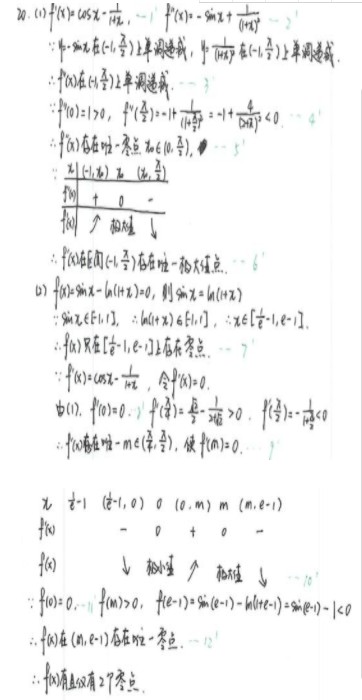 20. (1) f'(x)=cosx-1/(1+x), --1' f''(x)=-sinx+1/(1+x)² --2'
∵ y=-sinx在(-1,π/2)上单调递减, y=1/(1+x)²在(-1,π/2)上单调递减
∴ f''(x)在(-1,π/2)上单调递减. --3'
∵ f''(0)=1>0, f''(π/2)=-1+1/(1+π/2)²=-1+4/(2+π)²<0. --4'
∴ f''(x)存在唯一零点x₀∈(0,π/2), --5'
∴ x (-1,x₀) x₀ (x₀,π/2)
f''(x) + 0 -
f'(x) ↗ 极大值 ↓
∴ f'(x)在区间(-1,π/2)存在唯一极大值点. --6'
(2) f(x)=sinx-ln(1+x)=0, 则sinx=ln(1+x)
∵ sinx∈[-1,1], ∴ ln(1+x)∈[-1,1], ∴ x∈[1/e-1,e-1].
∴ f(x)只在[1/e-1,e-1]上存在零点. --7'
∵ f'(x)=cosx-1/(1+x), 令f'(x)=0.
由(1), f'(0)=0. f'(π/2)=-1/(1+π/2)<0
∴ f'(x)存在唯一m∈(π/4,π/2), 使f'(m)=0. --9'
x 1/e-1 (1/e-1,0) 0 (0,m) m (m,e-1)
f'(x) - 0 + 0 -
f(x) ↓ 极小值 ↗ 极大值 ↓ --10'
∵ f(0)=0, --11' f(m)>0, f(e-1)=sin(e-1)-ln(1+e-1)=sin(e-1)-1<0
∴ f(x)在(m,e-1)存在唯一零点. --12'
∴ f(x)有且仅有2个零点.